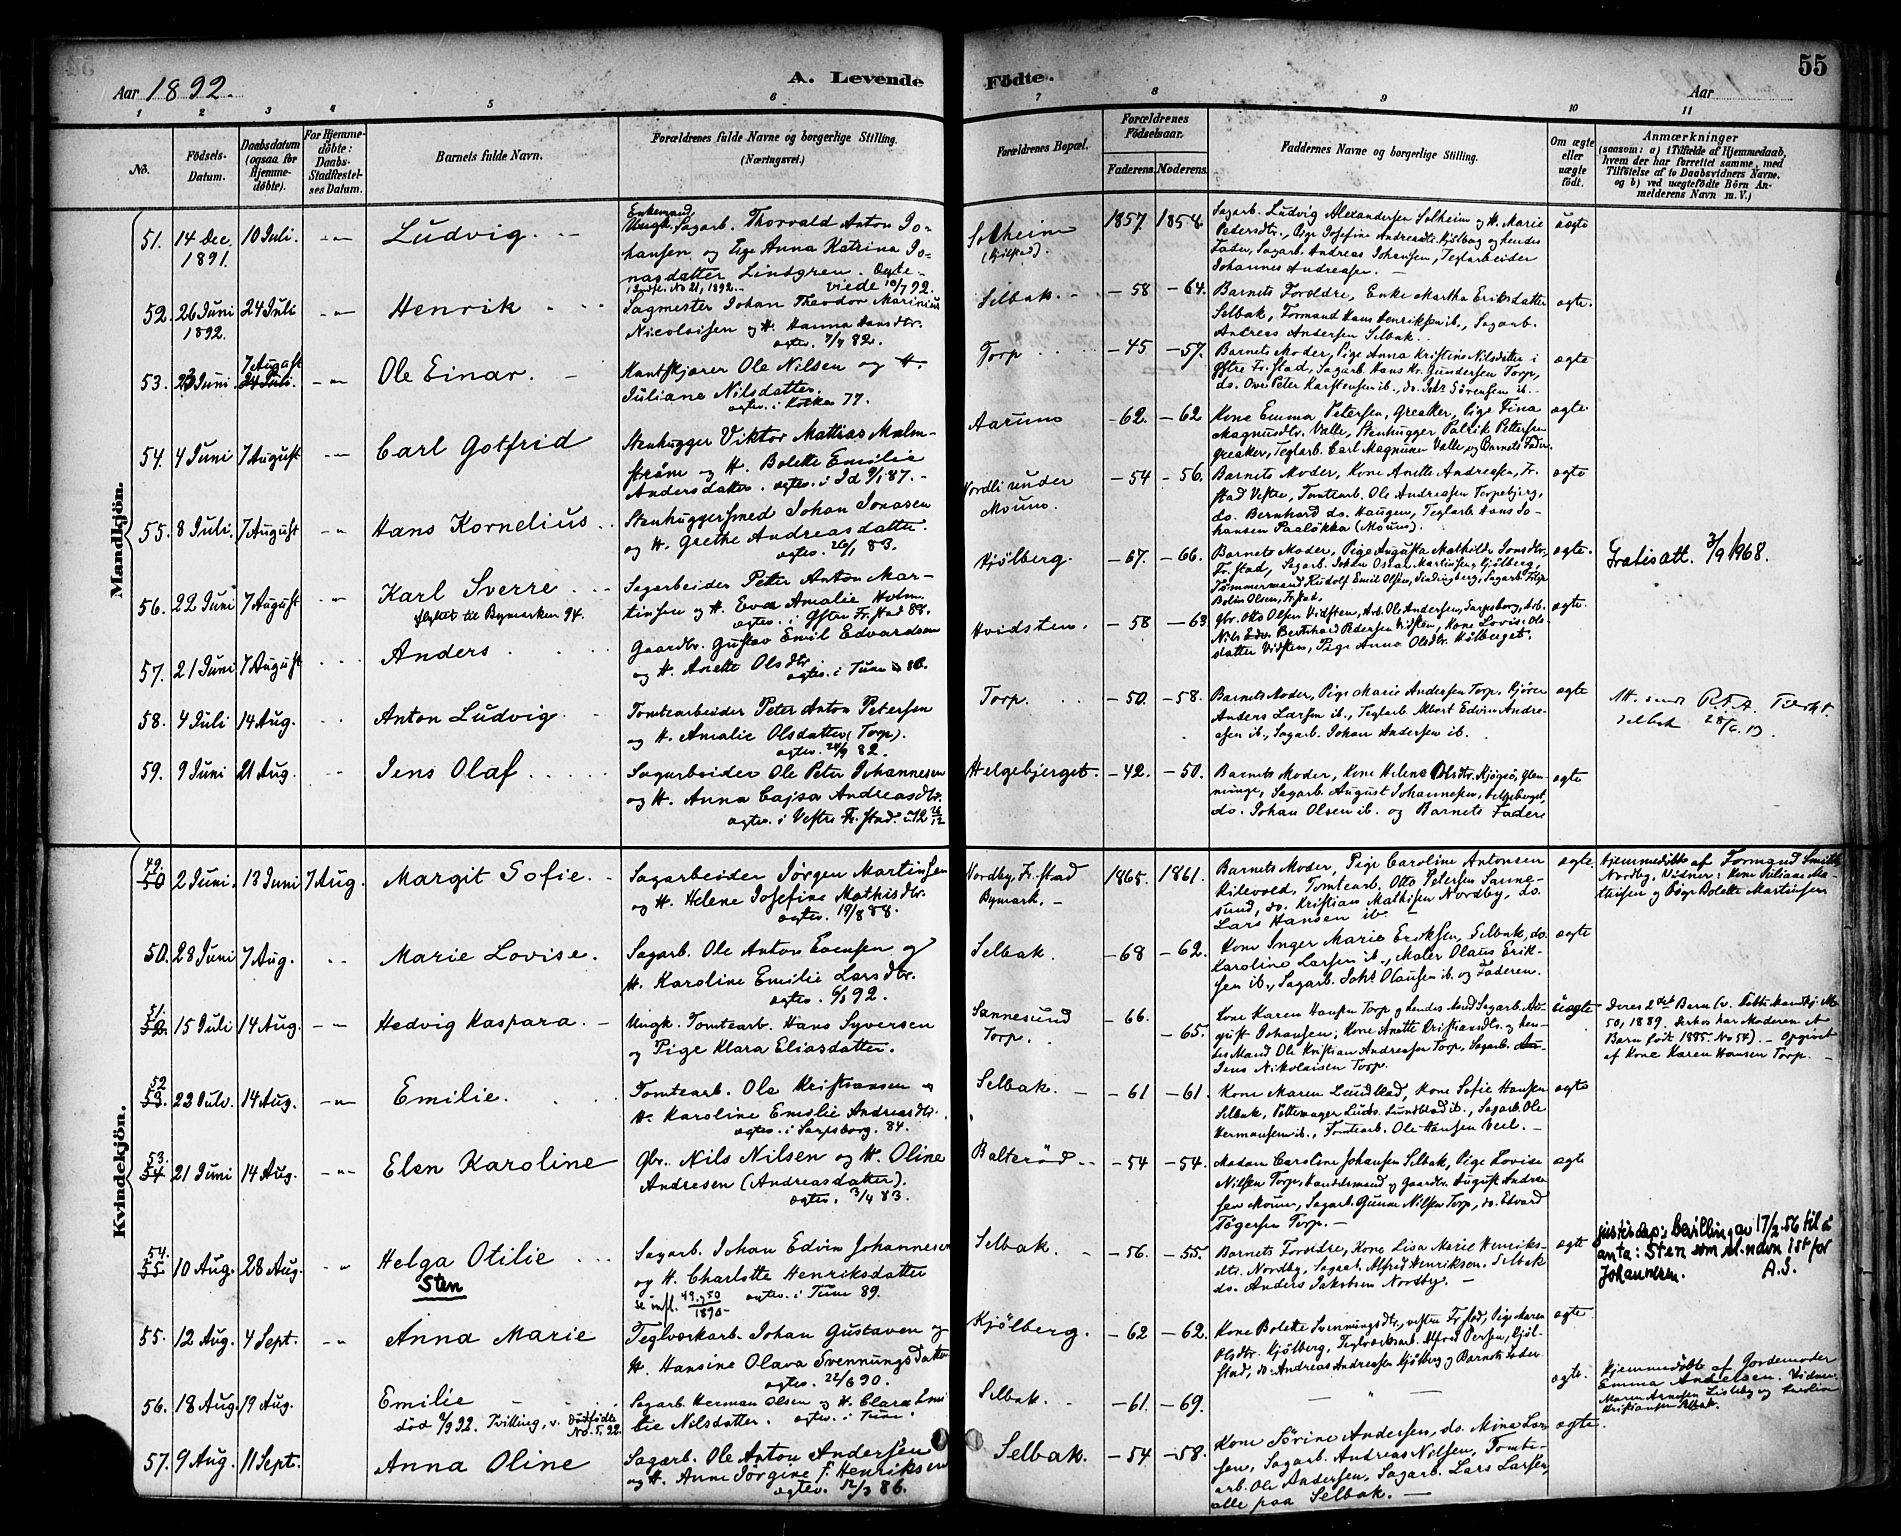 55
Aar 1892.
A. Levende Fødte.
Aar
1 2 3 4 5 6 7 8 9 10 11
No.
Fødsels-Datum.
Daabsdatum (ogsaa for Hjemmedøbte).
For Hjemmedøbte: Daabs-Stadfæstelses Datum.
Barnets fulde Navn.
Forældrenes fulde Navne og borgerlige Stilling. (Næringsvei.)
Forældrenes Bopæl.
Forældrenes Fødselsaar.
Faderens. Moderens.
Faddernes Navne og borgerlige Stilling.
Om ægte eller uægte født.
Anmærkninger
(saasom: a) i Tilfælde af Hjemmedaab, hvem der har forrettet samme, med Tilføielse af to Daabsvidners Navne, og b) ved uægtefødte Børn Anmelderens Navn m. V.)
Mandkjön.
51. 14 Dec. 1891. 10 Juli. Ludvig.
Enkemand Sagarb. Thorvald Anton Johansen og Pige Anna Katrina Jonasdatter Lindgren. Ægteviede 10/7 92.
Solheim (Kjølstad). 1857. 1854. uægte
Sagarb. Ludvig Alexandersen Solheim og H. Marie Pedersdtr., Pige Josefine Andreasdtr. Kjølberg og hendes Fader, Sagarb. Andreas Johansen, Teglarbeider Johannes Andreasen.
52. 26 Juni 1892. 24 Juli Henrik
Sagmester Johan Theodor Marinius Nicolaisen og H. Hanna Hansdtr.
Selbak. -58 -64. ægte.
Barnets Forældre, Enke Martha Eriksdatter Selbak, Formand Hans Henriksen ib., Sagarb. Andreas Andersen Selbak.
53. 23 Juni 7 August 24 Juli. Ole Einar.
Kantskjører Ole Nilsen og H. Juliane Nilsdatter
Torp -45 -57. ægte
Barnets Moder, Pige Anna Kristine Nilsdatter i Østre Fr.stad, Sagarb. Hans Kr. Gundersen Torp, do. Ove Peter Karstensen ib., do. Joh. Sørensen ib.
54. 4 Juni 7 August Carl Gotfrid
Stenhugger Viktor Mattias Malmstrøm og H. Bolette Emilie Andersdatter. ægtev. i Id 9/1 87.
Aarum -62. -62 ægte
Kone Emma Petersen, Greaker, Pige Fina Magnusdtr. Valle, Stenhugger Patrik Pettersen Greaker, Teglarb. Carl Magnusen Valle og Barnets Fader.
55. 8 Juli. 7 August Hans Kornelius
Stenhuggersmed Johan Jonasen og H. Grethe Andreasdatter. ægtev. 26/1 83.
Nordli under Moum. -54 -56. ægte
Barnets Moder, Kone Anette Andreasen, Fr.stad Vestre, Tomtearb. Ole Andreasen Torpebjerg, do. Bernhard do. Haugen, Teglarb. Hans Johansen Paaløkka (Moum).
56. 22 Juni 7 August Karl Sverre
flyttet til Bymarken 94.
Sagarbeider Peter Anton Martinsen og H. Eva Amalie Holm ægtev. i Østre Fr.stad 88.
Kjølberg. -67. -66. ægte.
Barnets Moder, Pige Augusta Mathilde Jonsdtr., Fr.stad, Sagarb. Johan Oskar Martinsen Kjølberg, Tømmermand Rudolf Emil Olsen
Gratis att. 3/9 1968.
57. 21 Juni 7 August Anders
Gaardbr. Gustav Emil Edvardsen og H. Anette Olsdtr. ægtev. i Tune 86.
Hvidsten. -58 -63 ægte.
Gbr. Otto Olsen Vidsten, Arb. Ole Andersen, Sarpsborg, Arb. Nils Edv. Bernhard Pedersen Vidsten, Kone Lovise Olsdatter Vidsten, Pige Anna Olsdtr.
58. 4 Juli 14 Aug. Anton Ludvig
Tomtearbeider Peter Anton Petersen og H. Amalie Olsdatter (Torp). ægtev. 24/9 82.
Torp. -50. -58. ægte
Barnets Moder, Pige Marie Andersen Torp, Kjører Anders Larsen ib., Teglarb. Albert Edvin Andreasen ib., Sagarb. Johan Andersen ib.
Att. sendt Selbak 28/6 19.
59. 9 Juni 21 Aug. Jens Olaf
Sagarbeider Ole Peter Johannesen og H. Anna Cajsa Andreasdtr. ægtev. i Vestre Fr.stad
Helgebjerget. -42. -50. ægte
Barnets Moder, Kone Helene Olsdtr. Glemminge, Sagarb. August Johannesen, Helgeberget, do. Johan Olsen ib. og Barnets Fader
Kvindekjön.
49. 50 2 Juni. 13 Juni 7 Aug. Margit Sofie.
Sagarbeider Jørgen Martinsen og H. Helene Josefine Mathisdtr. ægtev. 19/8 88.
Nordby, Fr.stad Bymark. 1865. 1861. ægte.
Barnets Moder, Pige Caroline Antonsen Kilevold, Tomtearb. Otto Petersen Sannesund, do. Kristian Mathisen Nordby, do. Lars Hansen ib.
Hjemmedøbt af Formand Smith, Nordby, Vidner: Kone Juliane Mathisen og Pige Bolette Martinsen
50. 28 Juni 7 Aug. Marie Lovise.
Sagarb. Ole Anton Evensen og H. Karoline Emilie Larsdtr. ægtev. 6/3 92.
Selbak. -68 -62. ægte
Kone Inger Marie Eriksen, Selbak, do. Karoline Larsen ib., Maler Olaus Eriksen ib., Sagarb. Johs. Olausen ib. og Faderen.
51. 52. 15 Juli 14 Aug. Hedvig Kaspara.
Ungk. Tomtearb. Hans Syversen og Pige Klara Eliasdatter.
Sannesund Torp. -66. -65. uægte
Kone Karen Hansen Torp og hendes Mand Sagarb. August Johansen; Kone Anette Kristiansdtr. og hendes Mand Ole Kristian Andreasen Torp, Sagarb. Jens Nikolaisen Torp.
Deres 2det Barn (v. Døbte Mandkj. No 50, 1889. Desuden har Moderen et Barn født 1885. No 54). - Opgivet af Kone Karen Hansen Torp.
52 53. 22 Juli. 14 Aug. Emilie.
Tomtearb. Ole Kristiansen og H. Karoline Emilie Andreasdtr. ægtev. i Sarpsborg. 84.
Selbak. -61 -61. ægte
Kone Maren Lundblad, Kone Sofie Hansen Selbak, Pottemager Ludv. Lundblad ib., Sagarb. Ole Hermansen ib., Tomtearb. Ole Hansen Veel.
53. 54 21 Juni 14 Aug. Elen Karoline
Gbr. Nils Nilsen og H. Oline Andresen (Andreasdatter). ægtev. 3/4 83.
Balterød -54 -54. ægte
Madam Caroline Johansen Selbak, Pige Lovise Nilsen Torp, Handelsmand og Gaardbr. August Andreasen Moum, Sagarb. Gunne Nilsen Torp, do. Edvard Tøgersen Torp.
54. 55. 10 Aug. 28 Aug. Helga Otilie
Sten
Sagarb. Johan Edvin Johannesen og H. Charlotte Henriksdatter ægtev. i Tune 89.
se infl. 49 og 50 1890
Selbak. -56. -55. ægte
Barnets Forældre, Kone Lisa Marie Henriksdtr. Nordby, Sagarb. Alfred Henriksen, Selbak do. Anders Jakobsen Nordby.
Justisdep. bevilling av 17/2 56 til å anta: Sten som sl.navn ist. for Johansen. A.S.
55. 12 Aug. 4 Sept. Anna Marie
Teglværkarb. Johan Gustavsen og H. Hansine Olava Svenningsdatter ægtev. 22/6 90.
Kjølberg. -62 -62. ægte
Kone Bolette Svenningsdtr., vestre Fr.stad, Pige Maren Olsdtr. Kjølberg, Teglværksarb. Alfred Persen, Kjølstad, do. Andreas Andreasen Kjølberg og Barnets Fader
56. 18 Aug. 19 Aug. Emilie
død 6/9 92. Tvilling, v. Dødfødte No. 5, 92.
Sagarb. Herman Olsen og H. Clara Emilie Nilsdatter. ægtev. i Tune.
Selbak. -61. -69. ægte.
Hjemmedøbt af Jordemoder Emma Andersen.
57. 9 Aug. 11 Sept. Anna Oline
Sagarb. Ole Anton Andersen og H. Anne Jørgine f. Henriksen ægtev. 12/3 86.
Selbak. -54 -58. ægte.
Kone Sørine Andersen, do. Mina Larsen, Sagarb. Andreas Nilsen, Tomtearb. Ole Andersen, Sagarb. Lars Larsen, alle paa Selbak.